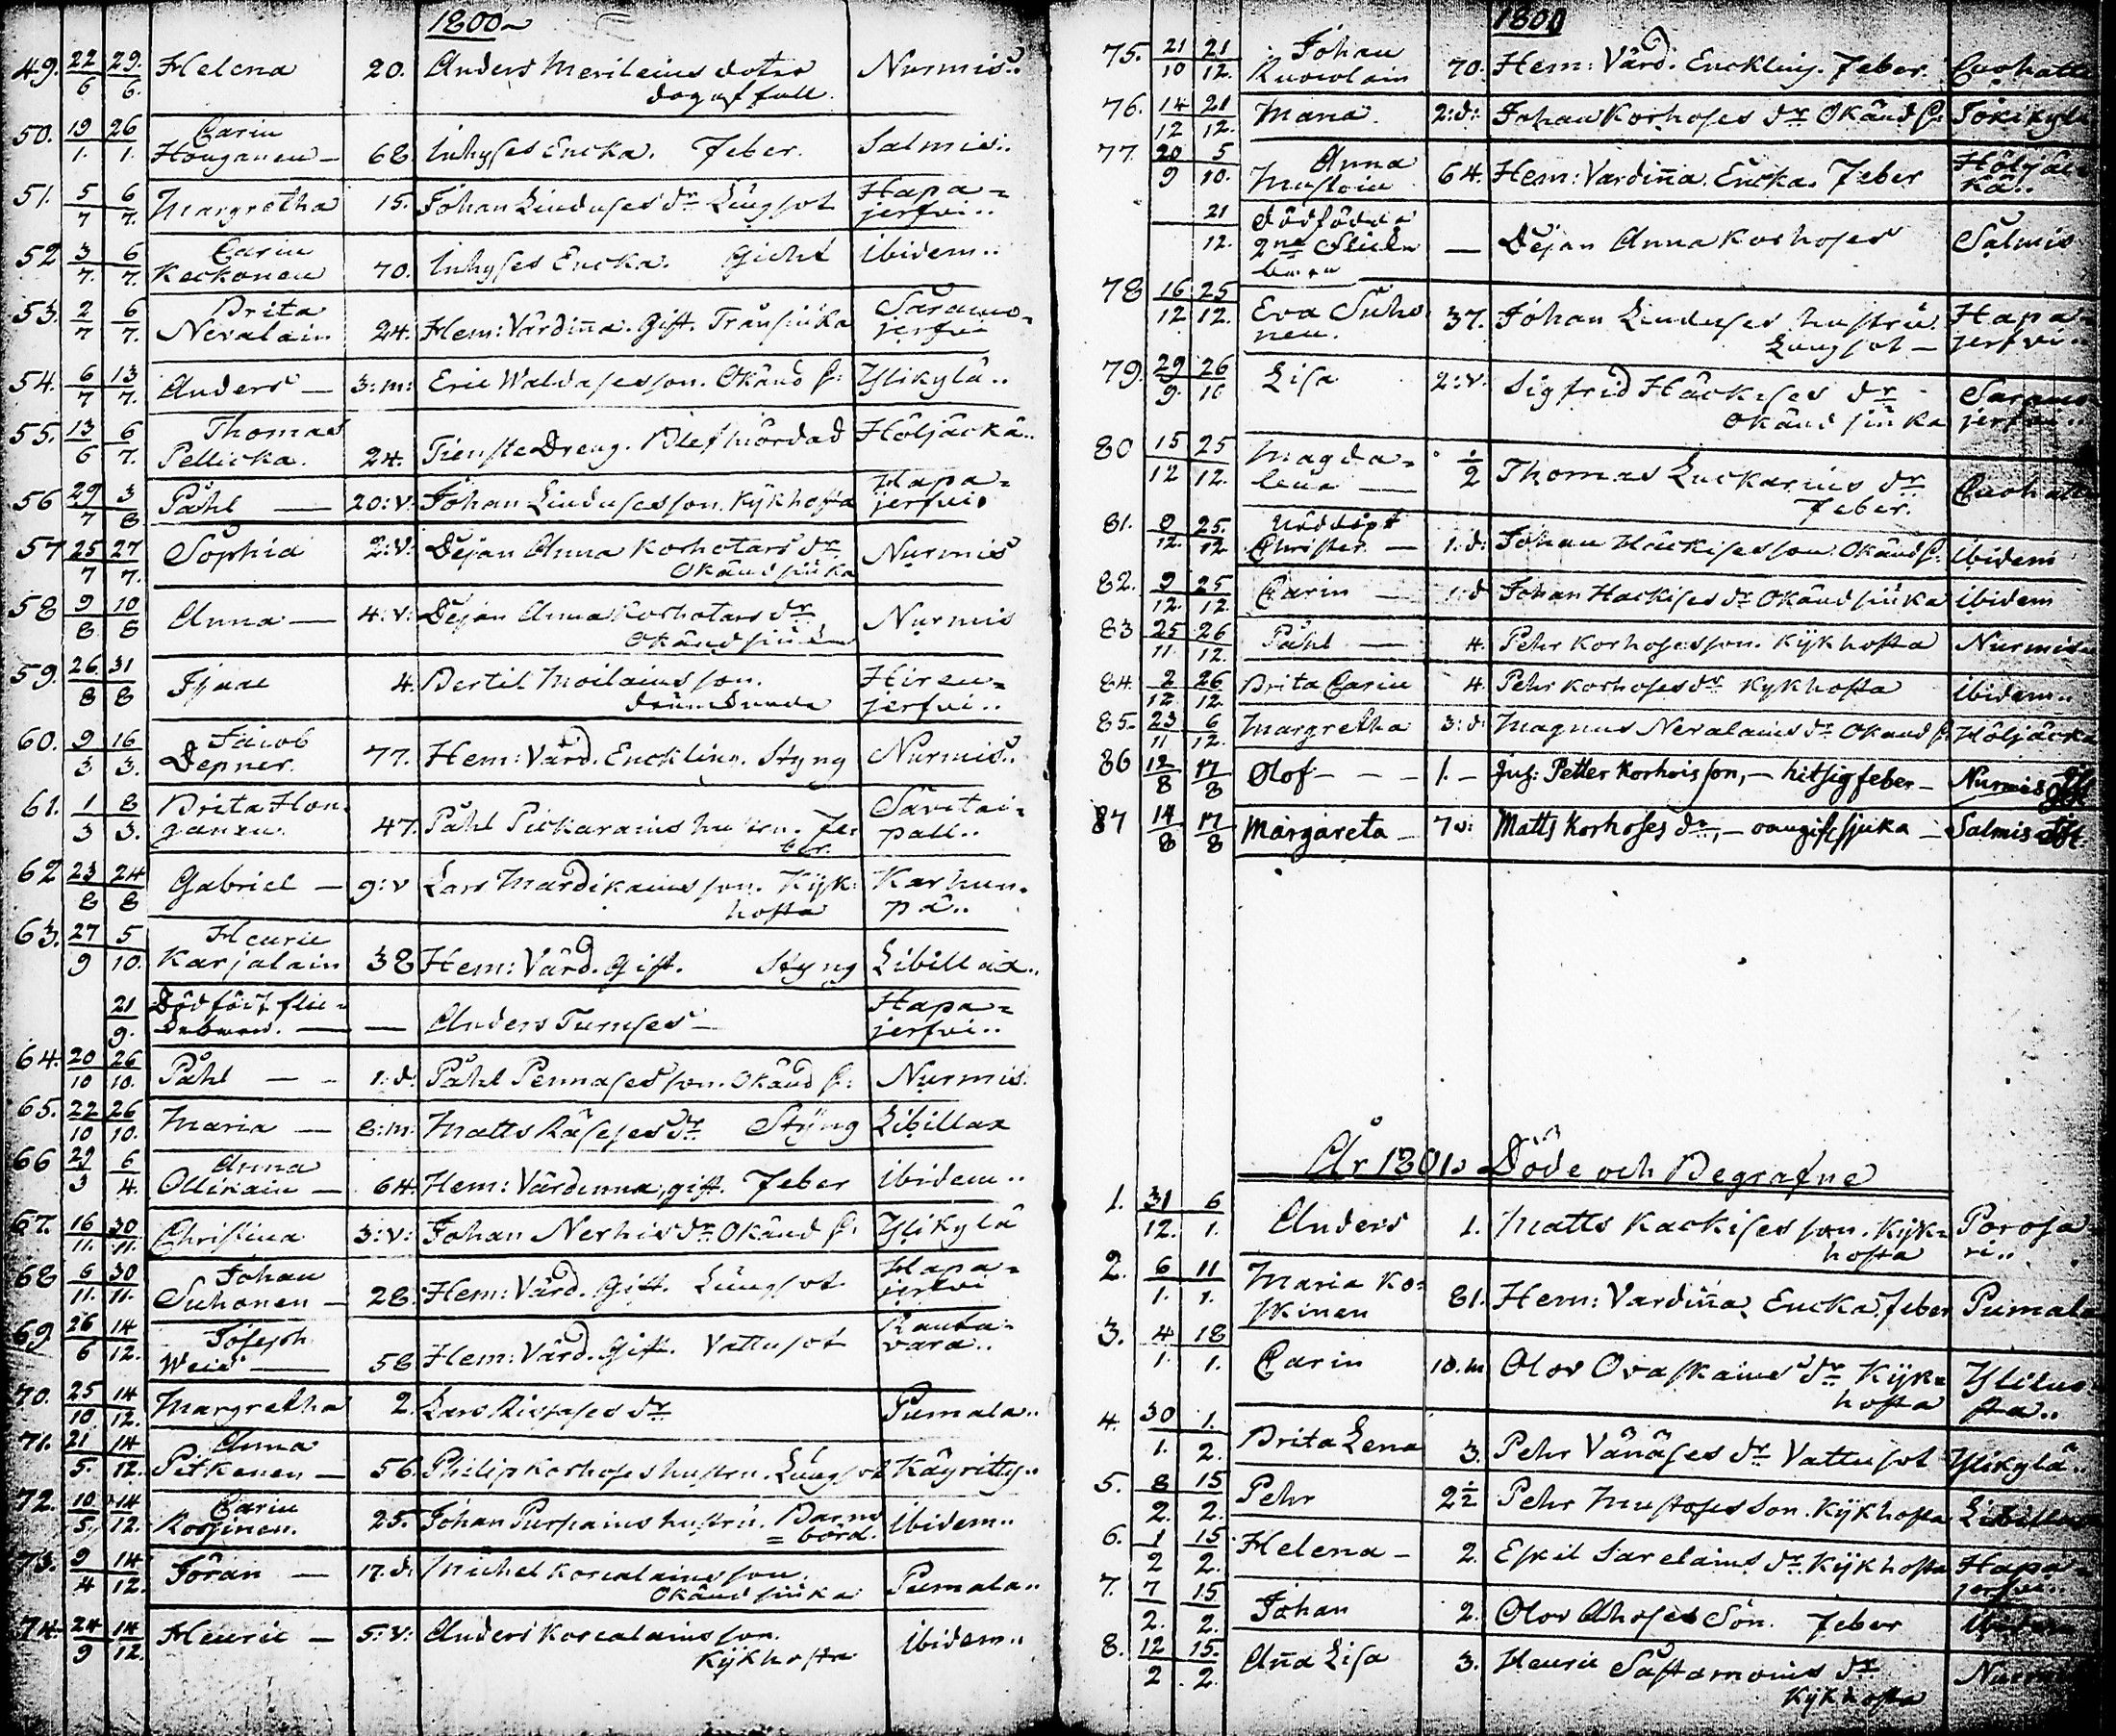 1800
49. 22/6 29/6. Helena 20. Anders Merileins doter Nurmis..
dog af fall.
50. 19/1. 26/1. Carin
Honganen — 68 Inhyses Encka. Feber. Salmis..
51. 5/7 6/7. Margretha 15. Johan Linduses dr Lungsot Hapa=
jerfvi..
52 3/7. 6/7. Carin
Keckonen 70. Inhyses Encka. Gicht Ibidem..
53. 2/7 6/7. Brita
Nevalain 24. Hem: Värdiña. Gift. Trånsiuka Saramo=
jerfvi
54. 6/7 13/7. Anders — 3:m: Eric Waldases son. Okänd s: Ylikylä..
55. 13/6 6/7. Thomas
Pellicka. 24. Tienste Dreng. Blef mördad Höljäckä..
56 29/7 3/8 Påhl — 20:v: Johan Linduses son. Kijkhosta Hapa=
jerfvi.
57 25/7 27/7. Sophia 2:v: Dejan Anna Korhotars dr Nurmis
Okänd siuka
58 9/8 10/8 Anna — 4:v: Dejan Anna Korhotars dr Nurmis
Okänd siuka
59. 26/8 31/8 Isaac 4. Bertil Moilains son. Hiren=
jerfvi..
60. 9/3 16/3. Jacob
Depner. 77. Hem: Värd. Enckling. Styng Nurmis..
61. 1/3 8/3. Brita Hon=
ganen. 47. Påhl Pickarains hustru. Fe=
ber. Savitai=
pall..
62 23/8 24/8 Gabriel — 9:v Lars Mardikains son. Kijk=
hosta Karhun=
pä..
63. 27/9 5/10. Henric
Karjalain 38 Hem: Värd. Gift. Styng Libillax..
21/9. Dödfödt flic=
kebarn. — — Anders Turuses — Hapa=
jerfvi..
64. 20/10 26/10. Påhl — — 1:d. Påhl Pennases son. Okänd s: Nurmis.
65. 22/10 26/10. Maria — 8:m: Matts Räseses dr Styng Libillax
66 29/3 6/4. Anna
Ollikain — 64. Hem: Värdinna, gift. Feber Ibidem..
67. 16/11. 30/11. Christina 3:v: Johan Nerhis dr Okänd s: Ylikylä
68 6/11. 30/11. Johan
Suhonen — 28. Hem: Värd. Gift. Lungsot Hapa=
jerfvi
69 26/6 14/12. Joseph
58 Hem: Värd. Gift. Vattusot Rauta=
vara..
70. 25/10 14/12. Margretha 2. Lars dr Pumala..
71. 21/5. 14/12. Anna
Pitkenen — 56. Philip Korhoses hustru. Lungsot Käyritty..
72. 10/5. 14/12. Carin
Rossinen. 25. Johan Purpains hustru. Barns=
börd. Ibidem..
73. 9/4 14/12. Jöran — 17.d: Michel Korcalains son.
Okänd siuka Pumala..
74. 24/9 14/12. Henric — 5:v: Anders Korcalains son.
Kijkhosta Ibidem..
1800
75. 21/10 21/12. Johan
70. Hem: Värd. Enckling. Feber.
76. 14/12 21/12. Maria. 2:d: Johan Korhoses dr Okänd s: Jokikylä
77. 20/9 5/10. Anna
Mustoin 64. Hem: Vardiña. Encka. Feber Höljäc=
kä..
21/12. Dödfödde
2ne flicke
barn — Dejan Anna Korhoses Salmis
78 16/12 25/12. Eva Suho
nen. 37. Johan Linduses hustru.
Lungsot — Hapa=
jerfvi..
79. 29/9. 26/10 Lisa 2:v. Sigfrid Häckises dr
Okänd siuka Saramo=
jerfvi..
80 15/12 25/12. Magda=
lena — 1/2 Thomas Luckarins dr
Feber.
81. 9/12. 25/12 Nöddöpt
Christer — 1:d: Johan Häckises son. Okänd s: Ibidem
82. 9/12. 25/12. Carin — 1:d Johan Hackises dr Okänd siuka Ibidem
83 25/11. 26/12. Påhl — 4. Pehr Korhoses son. Kijkhosta Nurmis
84. 2/12 26/12. Brita Carin 4. Pehr Korhoses dr Kykhosta Ibidem..
85. 23/11 6/12. Margretha 3:d: Magnus Nevalains dr Okand s: Höljäckä
86 12/8 17/8 Olof — — 1. — Inh: Petter Korhois son, — hitsig feber — Nurmis
87 14/8 17/8 Margareta — 7v: Matts Korhoses dr, — oangifs sjuka — Salmis
År 1801. Döde och Begrafne
1. 31/12. 6/1. Anders 1. Matts Kackises son. Kijk=
hosta Porosa=
ri..
2. 6/1. 11/1. Maria Ko=
skinen 81. Hem: Vardiña. Encka. Feber Pumala
3. 4/1. 18/1. Carin 10.m Olov Ovaskains dr Kijk=
hosta
4. 30/1. 1/2. Brita Lena 3. Pehr Vänäses dr Vattusot Ylikylä..
5. 8/2. 15/2. Pehr 2 1/2 Pehr Mustoses son. Kijkhosta Libillax
6. 1/2 15/2. Helena — 2. Eskil Sarelains dr. Kijkhosta Hapa=
jerfvi..
7. 7/2. 15/2. Johan 2. Olov Ahoses Son. Feber Ibidem
8. 12/2 15/2. Aña Lisa 3. Henric Sastamoins dr
Kijkhosta Nurmis